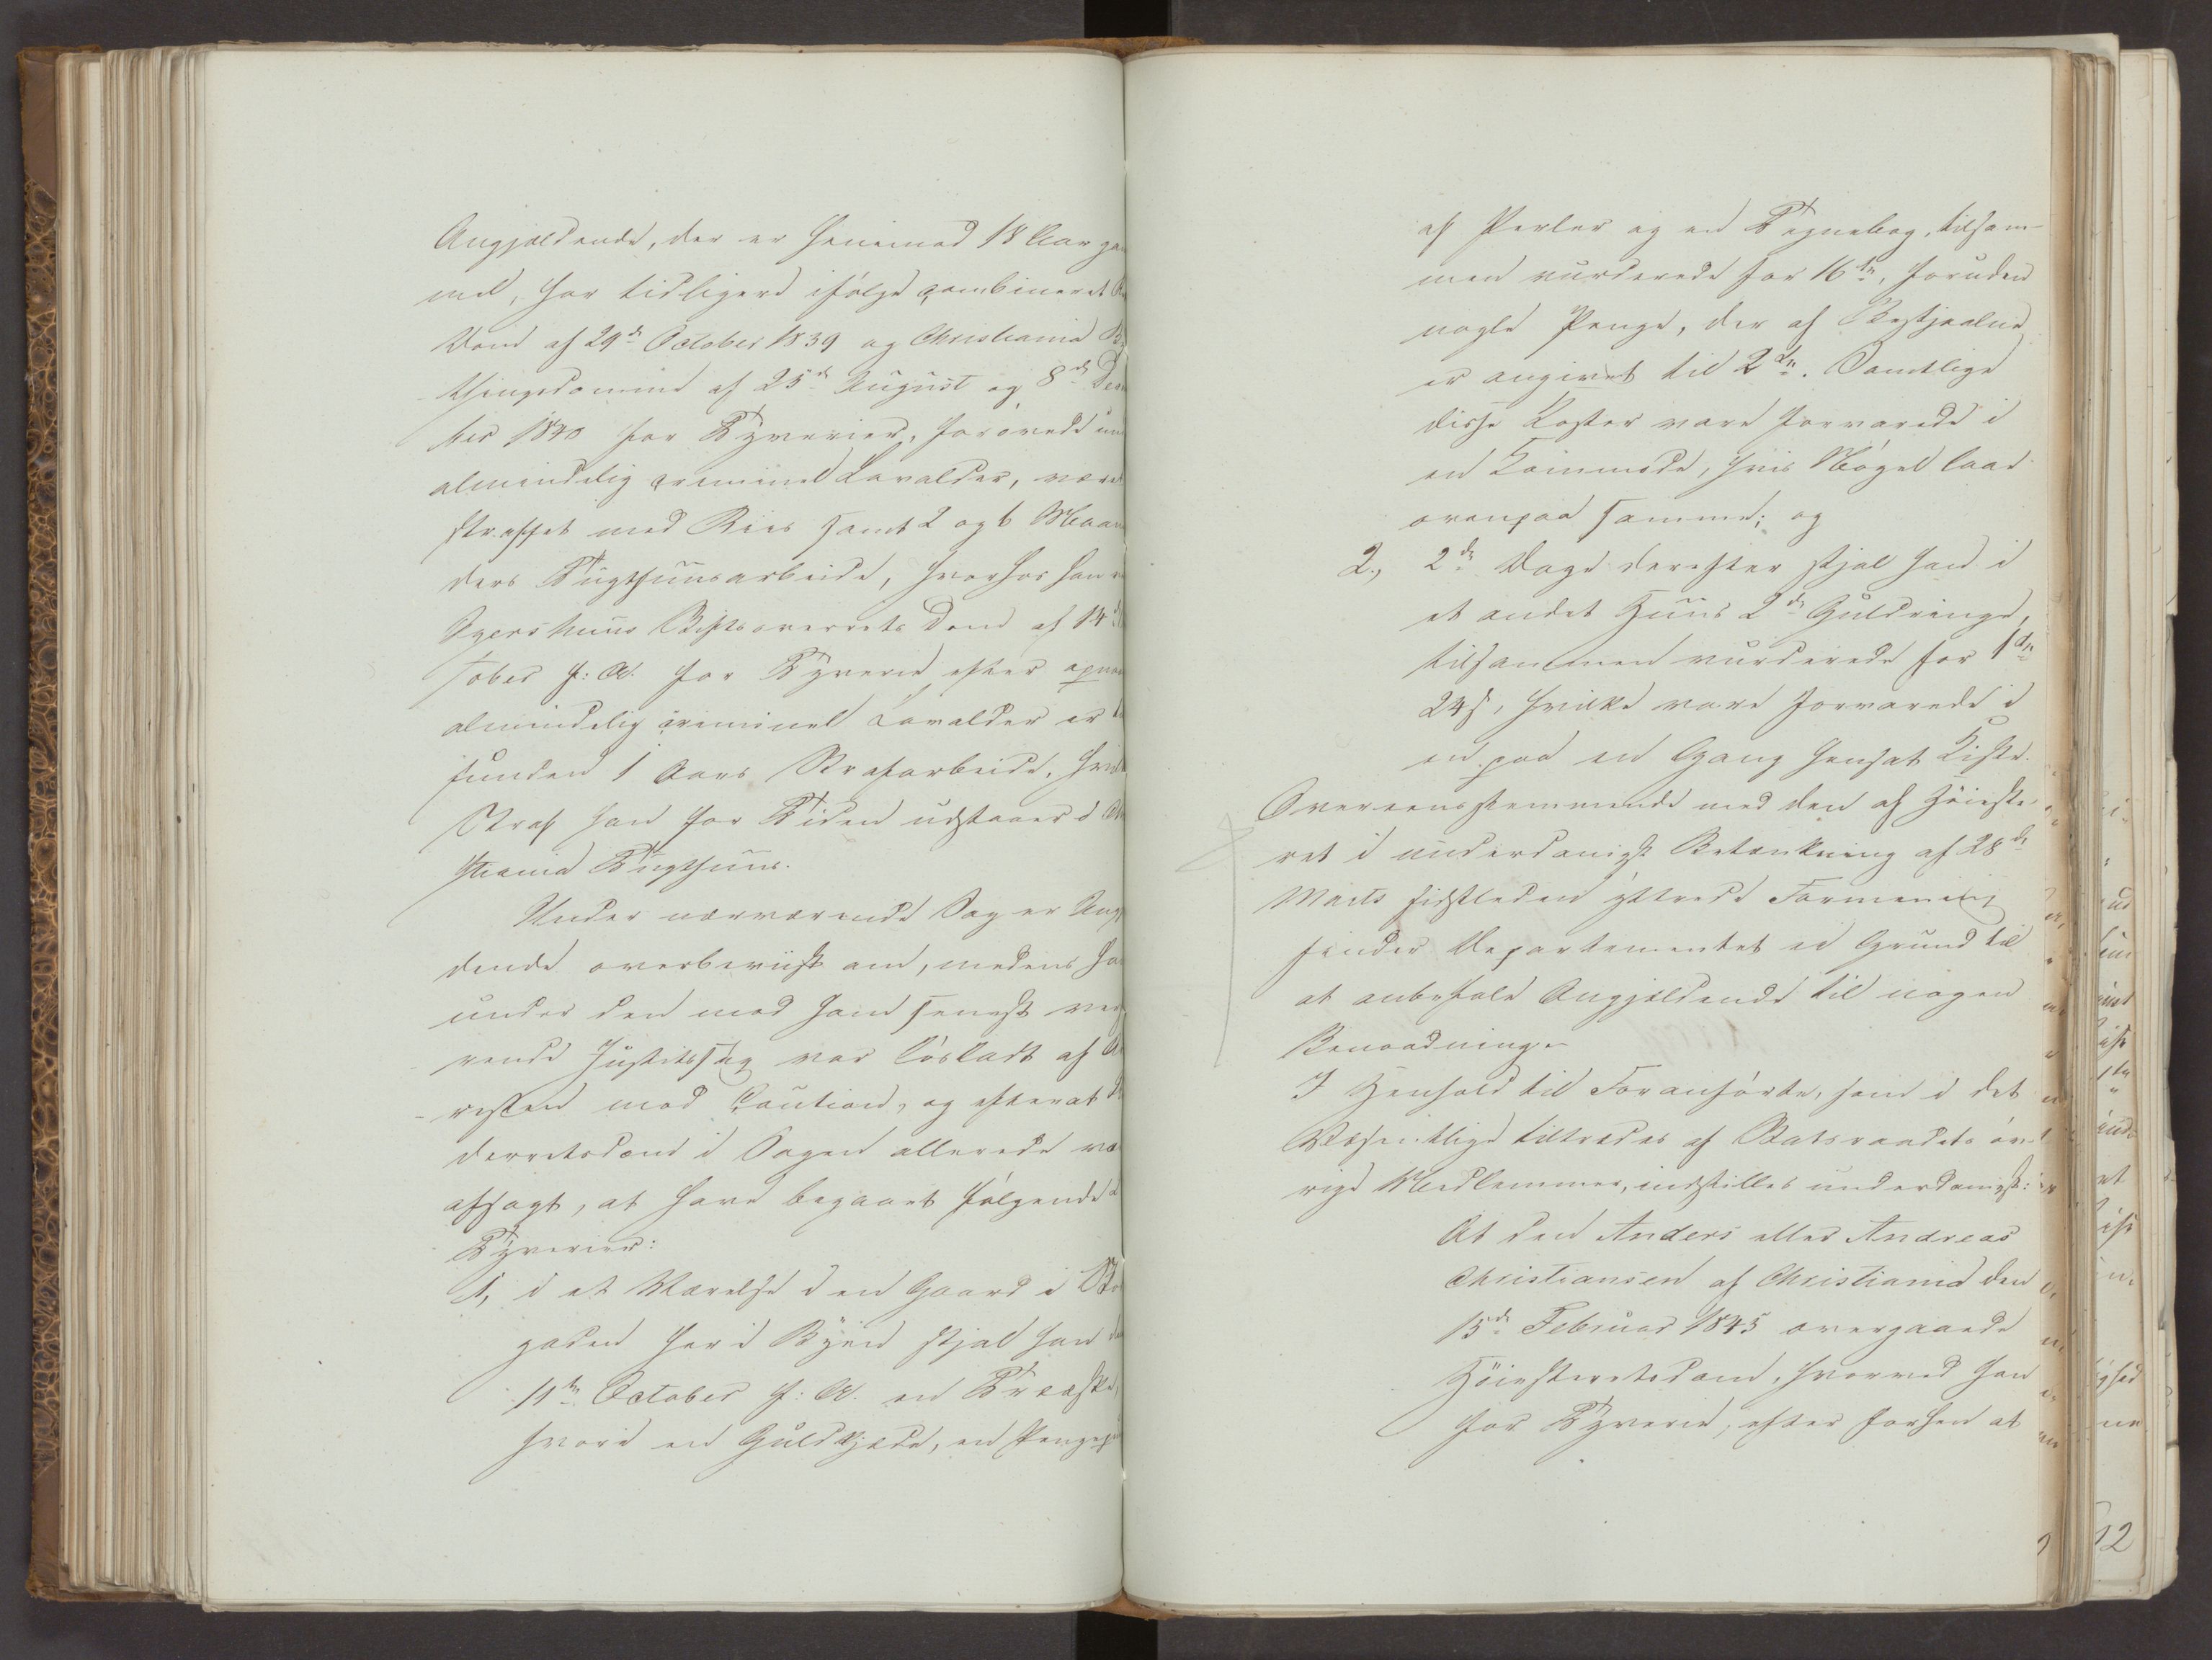 Angjældende, der er henimod 18 Aar ga
mel, har tidligere ifølge combineret
Dom af 29de October 1839 og Christiania B
thingsdomme af 25de August og 8de Decem
ber 1840 for Tyverier, forøvede un
almindelig criminel Lavalder, været
straffet med Riis samt 2 og 6 Maan
ders Tugthuusarbeide, hvorhos han v
Agershuus Stiftsoverrets Dom af 14de
tober f: A. for Tyverie efter opnaa
almindelig criminel Lavalder er
funden 1 Aars Strafarbeide, hvilk
Straf han for Tiden udstaaer i Chri
stiania Tugthuus.
Under nærværende Sag er Angj
dende overbeviist om, medens ha
under den mod ham senest ver
rende Justitssag var løsladt af A
resten mod Caution, og efterat
derretsdom i Sagen allerede va
afsagt, at have begaaet følgende 2
Tyverier:
1, i et Værelse i en Gaard i
gaden her i Byen stjal han de
11te October f: A. en Træske,
hvori en Guldkjæde, en Pengepu
af Perler og en Tegnebog, tilsam-
men vurderede for 16 ₰, foruden
nogle Penge, der af Bestjaalne
er angivet til 2 ₰. Samtlige
disse Koster vare forvarede i
en Kommode, hvis Nøgel laae
ovenpaa samme; og
2, 2de Dage derefter stjal han i
et andet Huus 2de Guldringe,
tilsammen vurderede for 1
24 ß, hvilke vare forvarede i
en paa en Gang hensat Kiste.
Overeensstemmende med den af Høieste-
ret i underdanigst Betænkning af 28de
Marts sidstleden yttrede Formening
finder Departementet ei Grund til
at anbefale Angjældende til nogen
Benaadning.
I Henhold til Foranførte, som i det
Væsentlige tiltrædes af Statsraadets øv-
rige Medlemmer, indstilles underdanigst:
At den Anders eller Andreas
Christiansen af Christiania den
15de Februar 1845 overgaaede
Høiesteretsdom, hvorved han
for Tyverie, efter forhen at
12